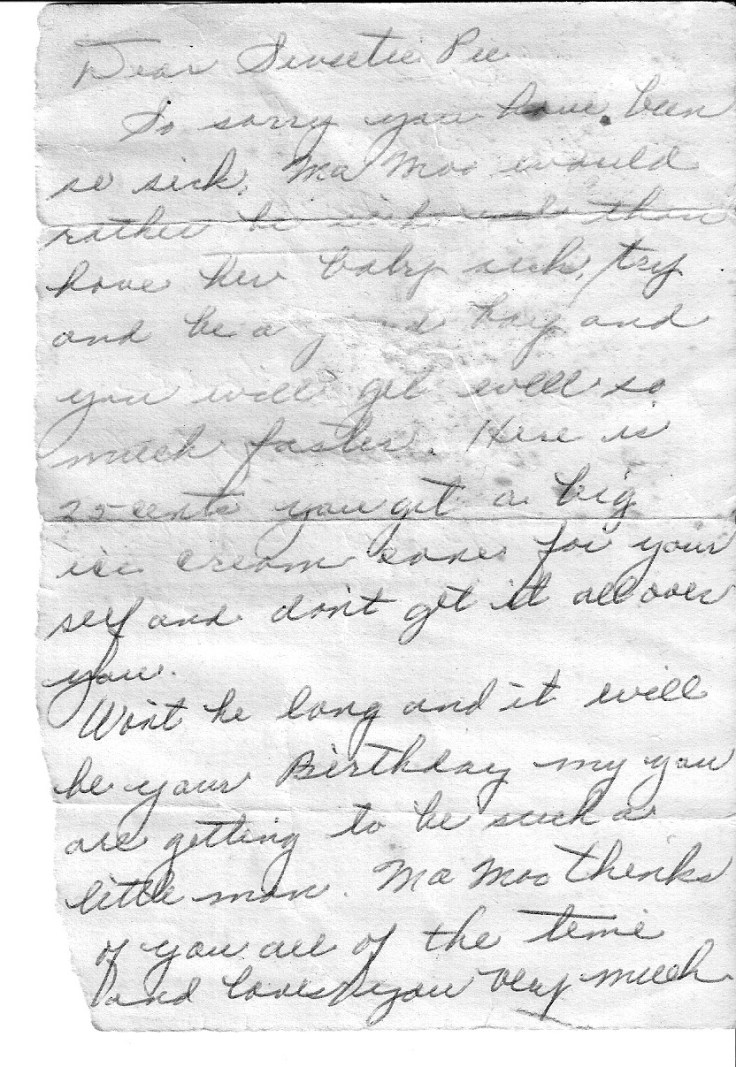 Dear Sweetie Pie
So sorry you have been
so sick. Ma Moo would
rather be sick than
have her baby sick, try
and be a good boy and
you will get well so
much faster. Here is
25 cents you get a big
ice cream cone for your
self and don't get it all over
you.
Won't be long and it will
be your Birthday my you
are getting to be such a
little man. Ma Moo thinks
of you all of the time
and loves you very much